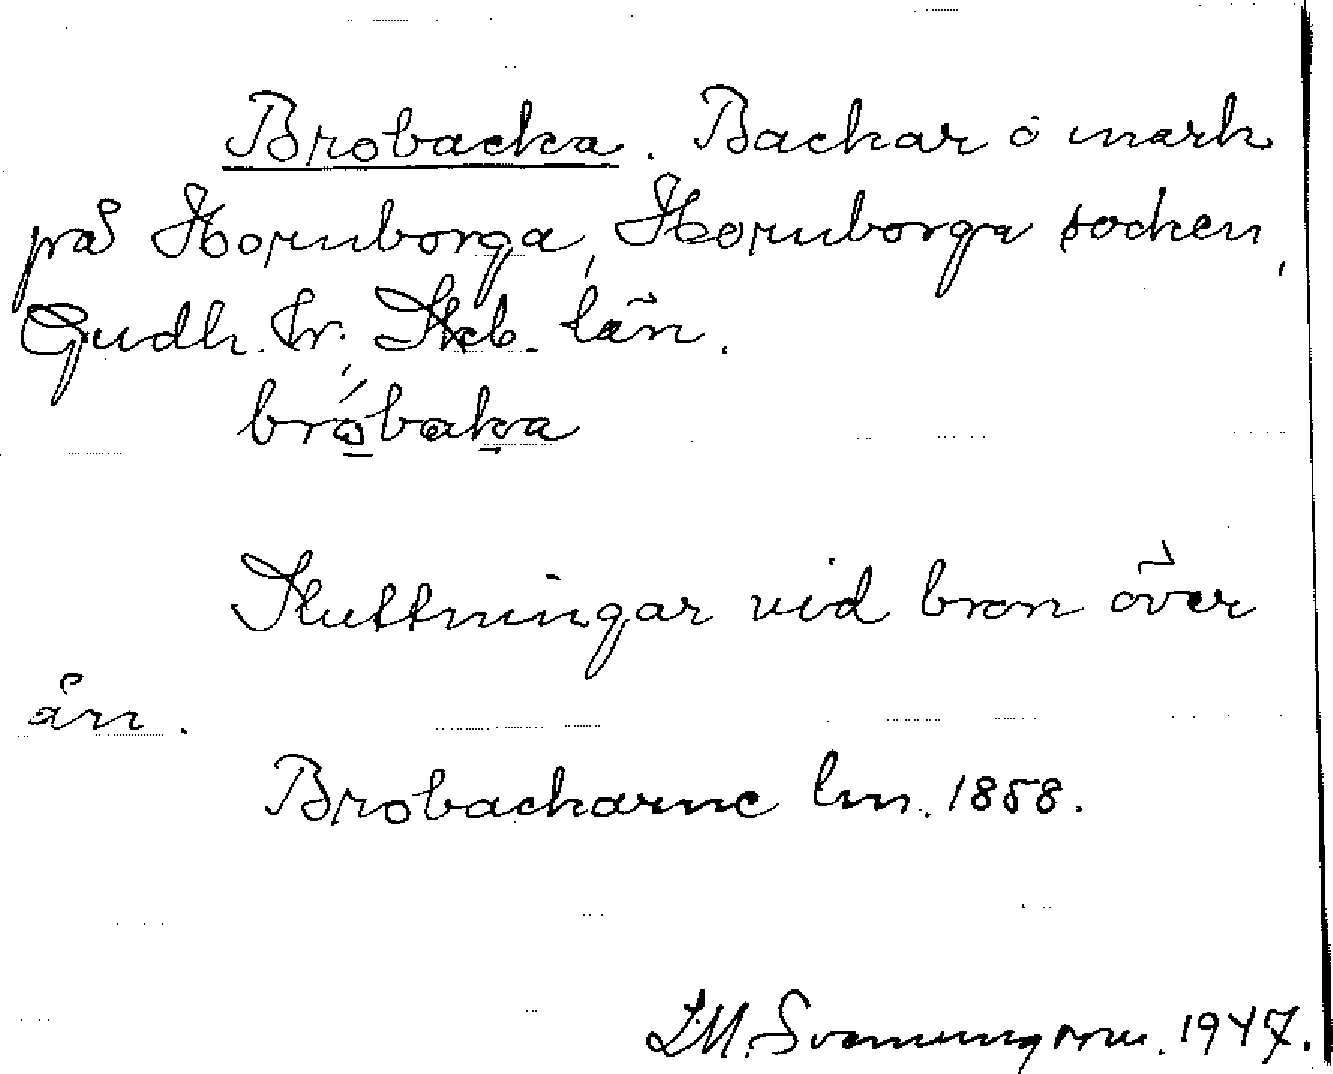 Brobacka. Backar o mark
på Hornborga, Hornborga socken,
Gudh. hr. Skb. län.
bróbaka
Sluttningar vid bron över
ån.
Brobackarne lm. 1858.
I.M. Svenungsson. 1947.